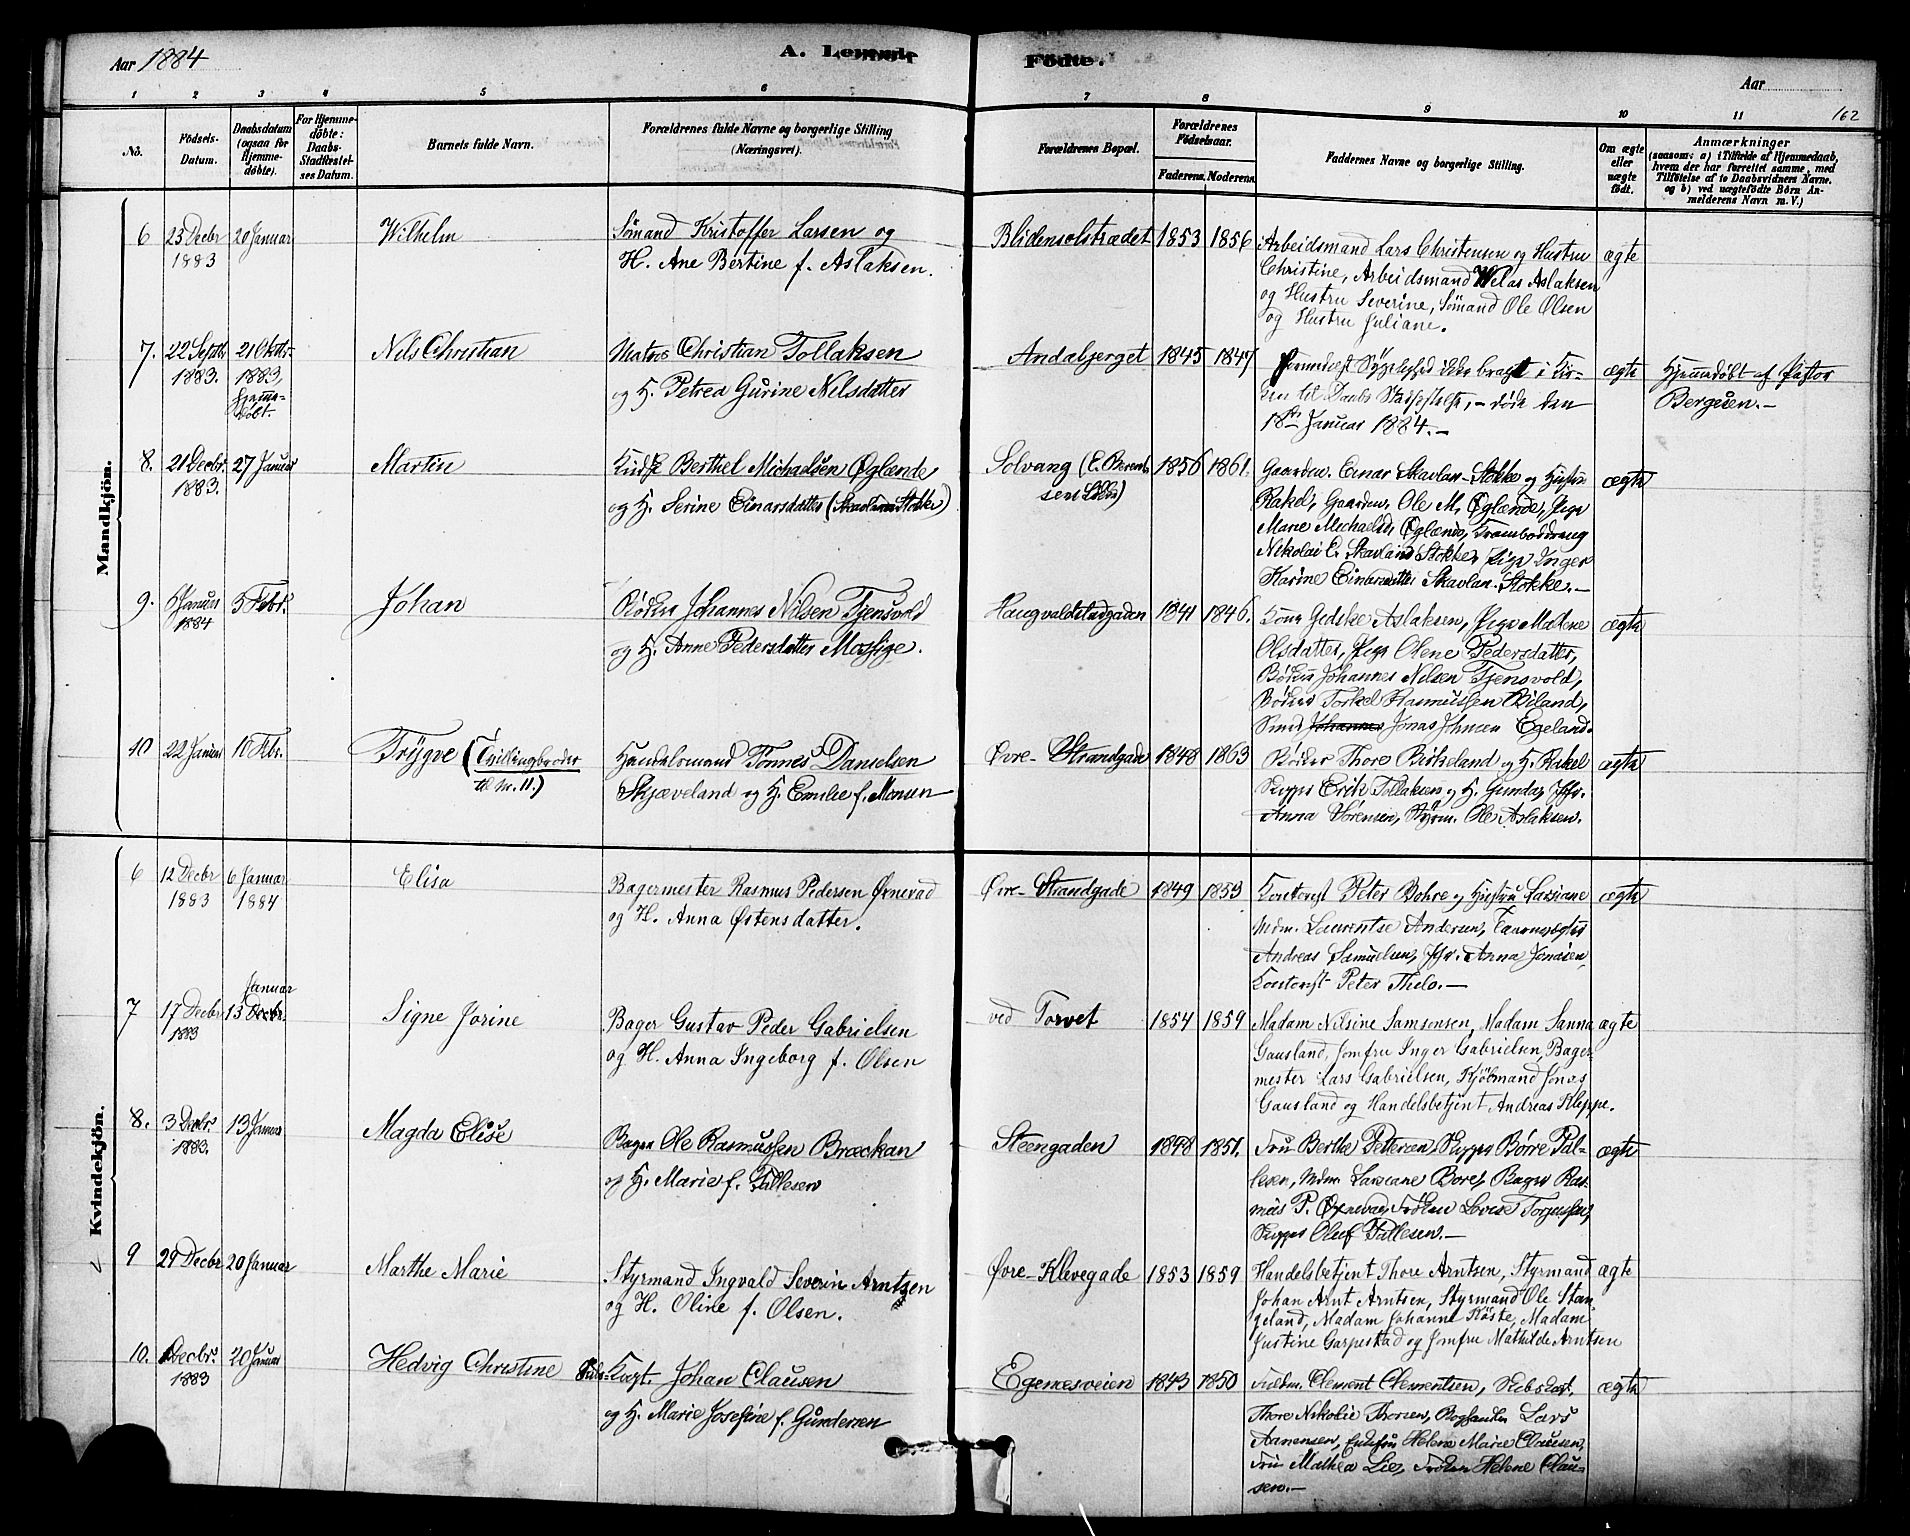 Aar 1884
A. Levende Födte.
Aar
162
1 2 3 4 5 6 7 8 9 10 11
No.
Födsels-Datum.
Daabsdatum (ogsaa for Hjemme-döbte).
For Hjemme-döbte: Daabs-Stadfæstel-ses Datum.
Barnets fulde Navn.
Forældrenes fulde Navne og borgerlige Stilling (Næringsvei).
Forældrenes Bopæl.
Forældrenes Födselsaar.
Faderens. Moderens.
Faddernes Navne og borgerlige Stilling.
Om ægte eller uægte födt.
Anmærkninger
(saasom: a) i Tilfælde af Hjemmedaab,
hvem der har forrettet samme, med
Tilföielse af to Daabsvidners Navne.
og b) ved uægtefödte Börn An-
melderens Navn m. V.)
Mandkjön.
6 25 Decbr 1883 20 Januar Wilhelm
Sömand Kristoffer Larsen og
H. Ane Bertine f. Aslaksen.
Blidensolstrædet 1853 1856
Arbeidsmand Lars Christensen og Hustru
Christine, Arbeidsmand Aslaksen
og Hustru Severine, Sömand Ole Olsen
og Hustru Juliane.
ægte
7. 22 Septb 1883. 21 Oktbr 1883, Hjemme-döbt. Nils Christian
Matros Christian Tollaksen
og H. Petrea Gurine Nelsdatter
Andabjerget 1845 1847
Formedelst Sygelighed ikke bragt i Kir-
ken til Daabs Stadfæstelse, - döde den
18de Januar 1884.-
ægte
Hjemmedöbt af Pastor
Bergesen.-
8. 21 Decbr. 1883. 27 Januar Martin
Berthel Michaelsen Öglænde
og H. Serine Einarsdatter (Skavlan Stokke)
Solvang (E. Berent-
sens Lökke) 1856 1861.
Gaardm. Einar Skavlan-Stokke og Hustru
Rakel, Gaardm. Ole M. Öglænde, Pige
Marie Michaelsd. Öglænde, Kramboddreng
Nikolai E. Skavland Stokke, Pige Inger
Karine Einarsdatter Skavlan-Stokke.-
ægte
9. 5 Januar 1884 5 Febr. Johan
Bödker Johannes Nilsen Tjensvold
og H. Anne Pedersdatter Mossige.
Haugvaldstadgaden 1841 1846.
Kone Gedske Aslaksen, Pige Malene
Olsdatter, Pige Olene Pedersdatter,
Bödker Johannes Nilsen Tjensvold,
Bödker Torkel Rasmussen Öiland,
Smed Johannes Jonas Johnsen Egeland.
ægte
10 22 Januar 10 Febr. Trygve (Tvillingbroder
til Nr. 11.)
Handelsmand Tönnes Danielsen
Skjæveland og H. Emilie f. Monsen
Övre-Strandgade 1848 1863
Bödker Thore Birkeland og H. Rakel
Skipps. Erik Tollaksen og H. Gunda, Jfr.
Anna Sörensen, Styrm. Ole Aslaksen.
ægte
Kvindekjön.
6 12 Decbr 1883 6 Januar 1884 Elisa
Bagermester Rasmus Pedersen Öxnevad
og H. Anna Östensdatter.
Övre-Strandgade 1849 1853
Kontorist Peter Bohre og Hustru Larsiane
Mdm. Laurentse Andersen,
Andreas Samuelsen, Jfr. Anna Jonasen,
Kontorist Peter Thelo.-
ægte
7 17 Decbr 1883 Januar 13 Decbr. Signe Jorine
Bager Gustav Peder Gabrielsen
og H. Anna Ingeborg f. Olsen
ved Torvet 1854 1859
Madam Nilsine Samsonsen, Madam Sanna
Gausland, Jomfru Inger Gabrielsen, Bager-
mester Lars Gabrielsen, Kjöbmand Jonas
Gausland og Handelsbetjent Andreas Kleppe.
ægte
8. 3 Decbr 1883. 13 Januar Magda Elise
Bager Ole Rasmussen Brækkan
og H. Marie f. Tallesen
Steengaden 1848 1851.
Fru Bertha Pettersen, Skipps. Börre Tal-
lesen, Mdm. Larsiane Bore, Bager Ras-
mus P. Öxnevad, Fröken Lovise Torjussen,
Skipps. Oluf Tallesen.-
ægte
9 29 Decbr 20 Januar Marthe Marie
Styrmand Ingvald Severin Arntzen
og H. Oline f. Olsen.
Övre-Klevegade 1853 1859
Handelsbetjent Thore Arntsen, Styrmand
Johan Arnt Arntsen, Styrmand Ole Stan-
geland, Madam Johanne Köste, Madam
Justine Garpestad og Jomfru Mathilde Arntsen
ægte
10. Decbr. 1883 20 Januar Hedvig Christine
Johan Clausen
og H. Marie Josefine f. Gundersen
Egenesveien 1843 1850
Clement Clementsen, Skibskapt.
Thore Nikolai Thorsen, Boghandler Lars
Aanensen, Helene Marie Clausen,
Fru Mathea Lie, Fröken Helene Clau-
sen.-
ægte